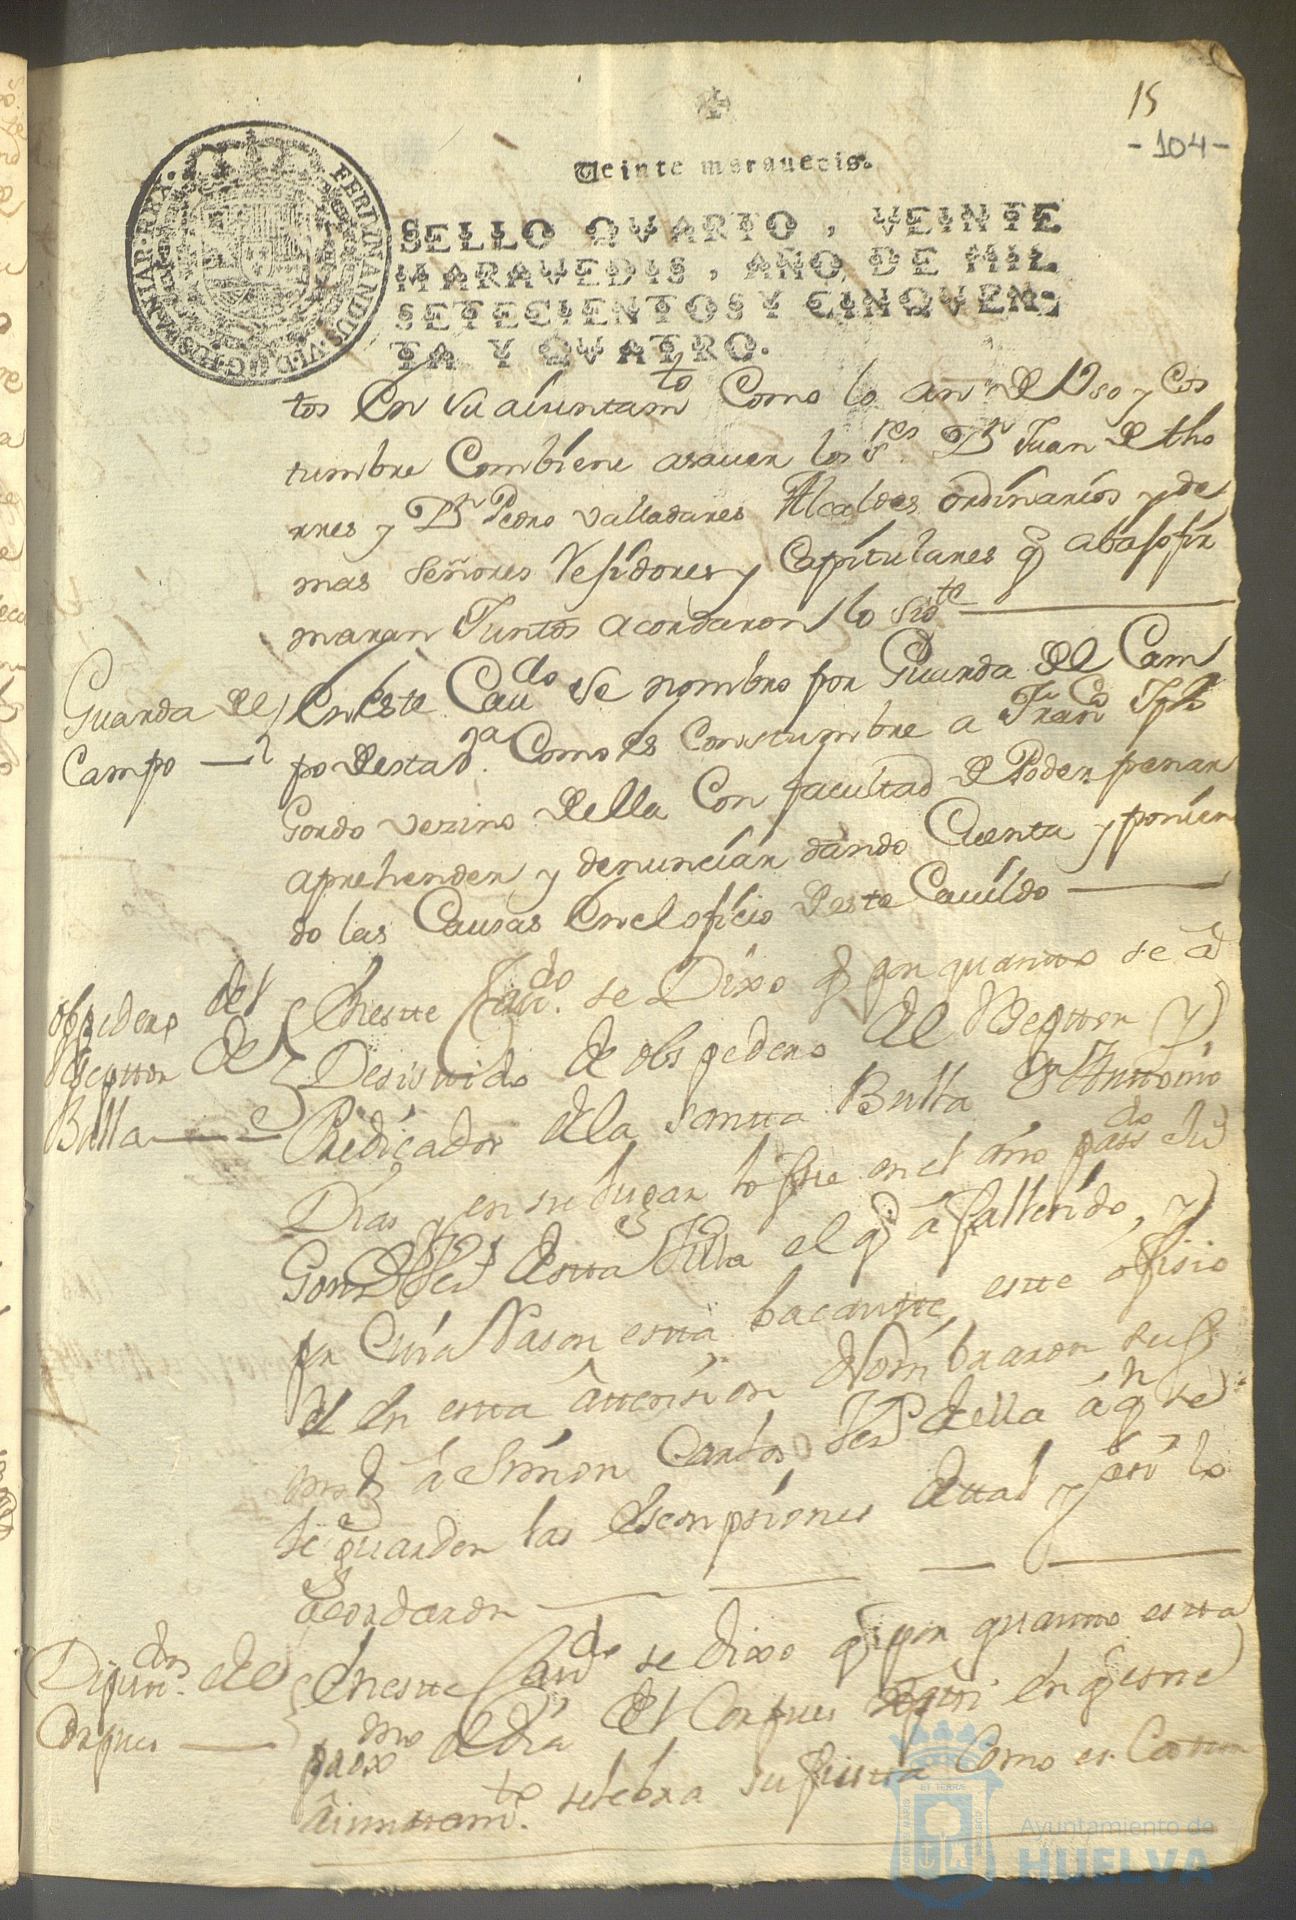 15
- 104 -
Veinte marauedis.
SELLO QVARTO, VEINTE
MARAVEDIS, AÑO DE MIL
SETECIENTOS Y CINQVEN-
TA Y QVATRO.
FERDINANDUS·VI·D·G·HISPANIAR·REX·
tos en su aiuntamto Como lo an de Vso y Cos
tumbre Combiene asauer los sres Dn Juan de tho
rres y Dn Pedro Valladares Alcaldes ordinarios y de
mas Señores Rejidores y Capitulares q abajo fir
maran Juntos acordaron lo sigte
Guarda del
Campo
En este Caudo se nombro por Guarda del Cam
po desta Va Como es Constumbre a Franco
Gordo vezino della Con facultad de Poder penar
aprehender y denunciar dando Cuenta y ponien
do las Causas en el oficio deste Cauildo
obspedero del
Reseptor de
Bulla
En este Caudo se Dixo q por quanto se a
Desistido de obspedero del Reseptor y
Predicador de la Santta Bulla Dn Anttonio
Dias y en su lugar lo fue en el año passdo
destta Villa el q a fallesido, y
por Cuia Rason estta bacantte este ofisio
en estta attension Nombraron sus
a Simon Carlos della a qn se
le guarden las Esempsiones de tal y asi lo
acordaron
Diputdos del
Corpus
En este Caudo se dixo q por quanto estta
proxmo el dia del Corpus en q este
aiunttamto selebra su fiestta Como es Costum
Ayuntamiento de
HUELVA